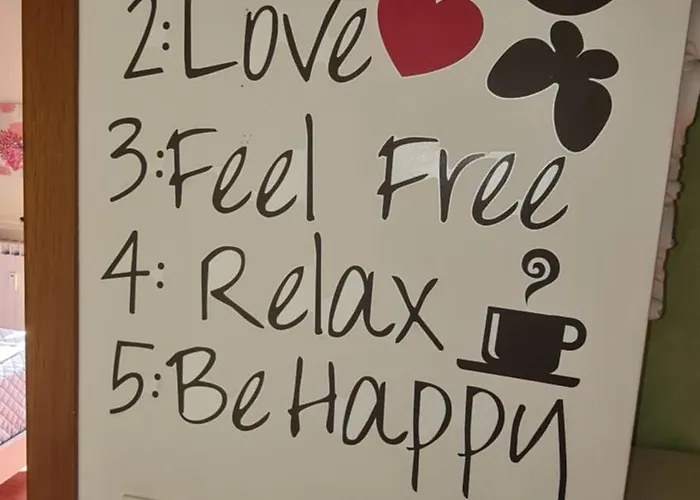 2:Love
3:Feel Free
4: Relax
5:Be Happy